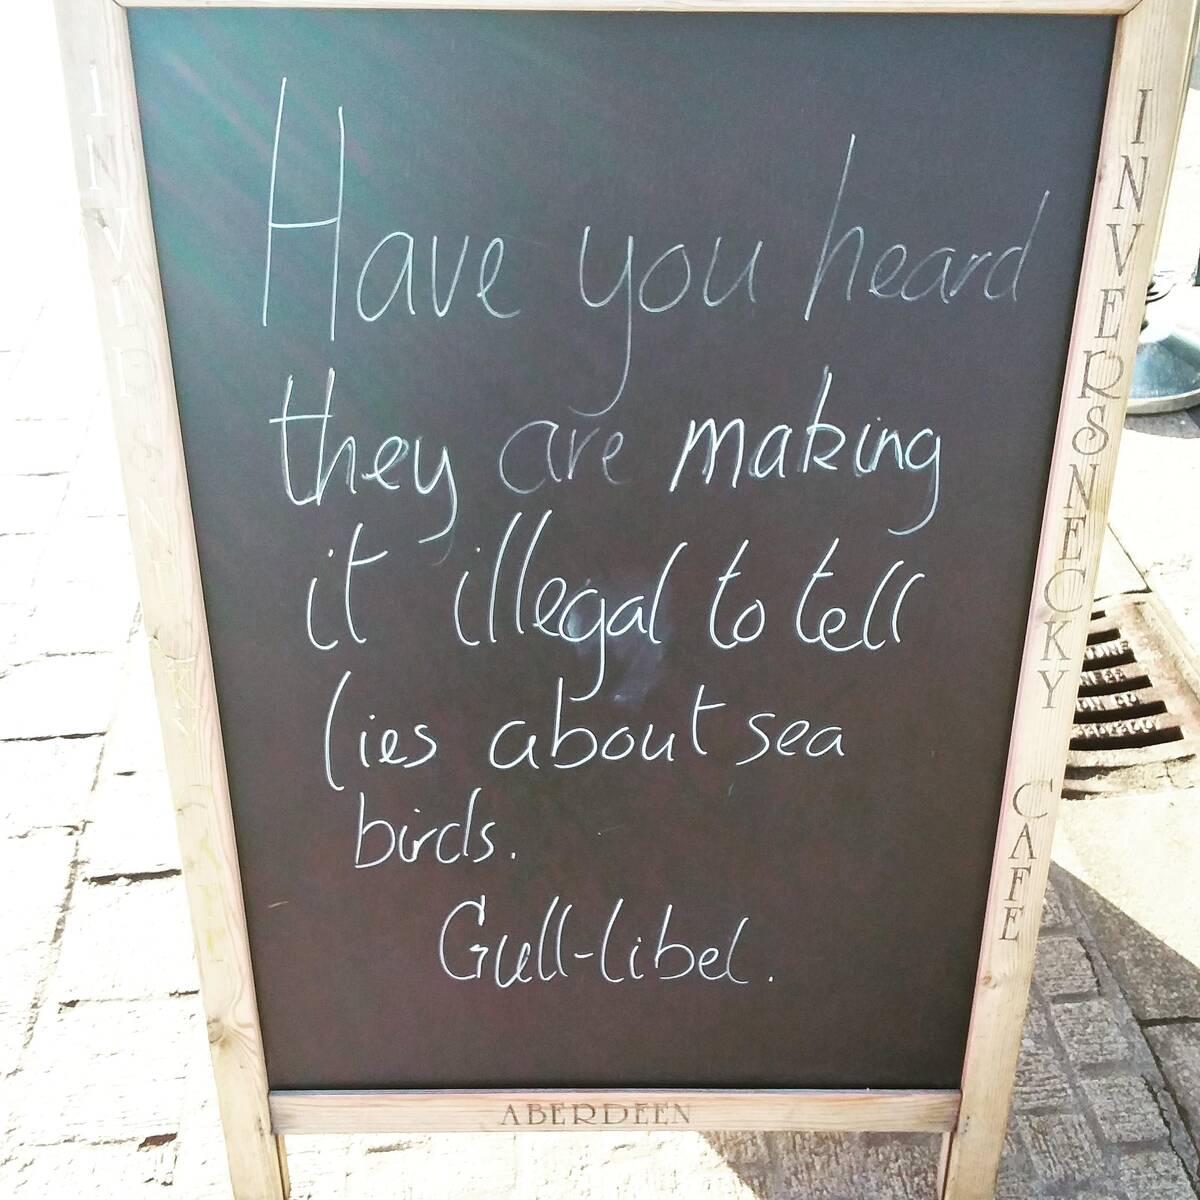 Have you heard
they are making
it illegal to tell
lies about sea
birds.
Gull-libel.
INVERSNECKY CAFE
INVERSNECKY CAFE
ABERDEEN